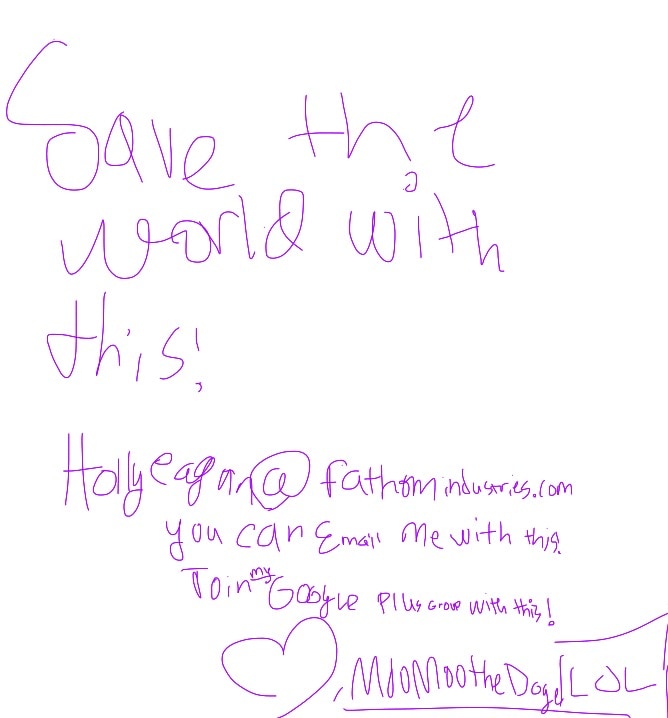 Save the
world with
this!
Hollyeagan@fathomindustries.com
you can Email me with this.
Join my Google Plus Group with this!
, MooMootheDoge LOL